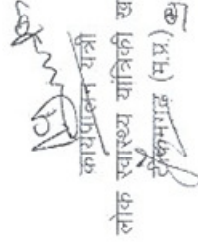 कार्यपालन यंत्री
लोक स्वास्थ्य यांत्रिकी ख
टीकमगढ़ (म.प्र.)